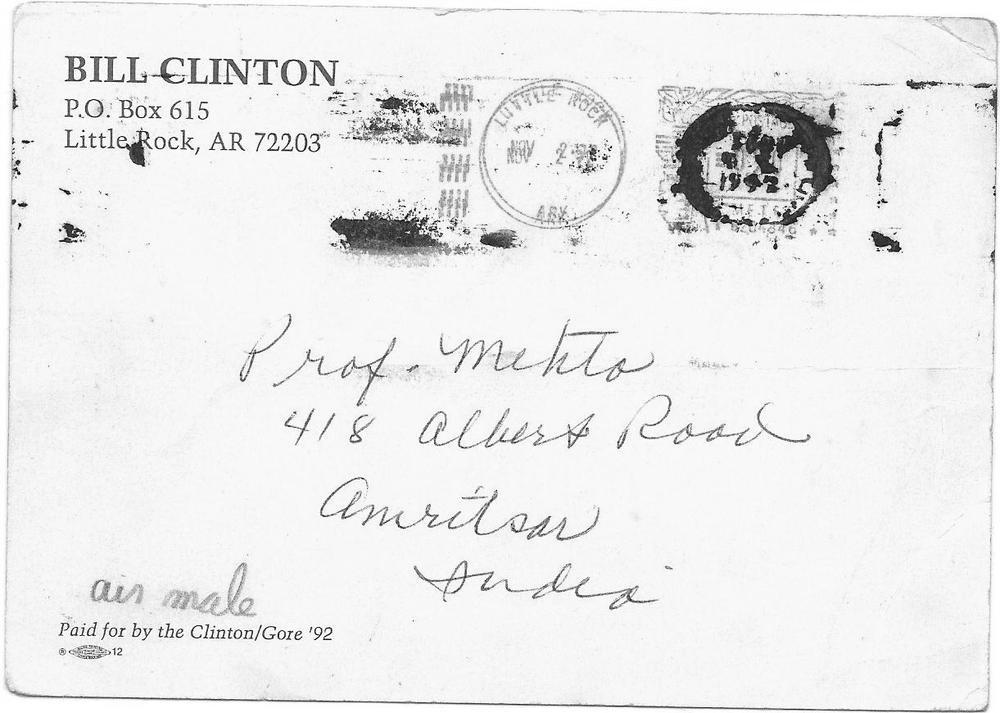 BILL CLINTON
P.O. Box 615
Little Rock, AR 72203
LITTLE ROCK
NOV 2
ARK
1992
Prof. Mehta
418 Albert Road
Amritsar
India
air male
Paid for by the Clinton/Gore '92
® 12